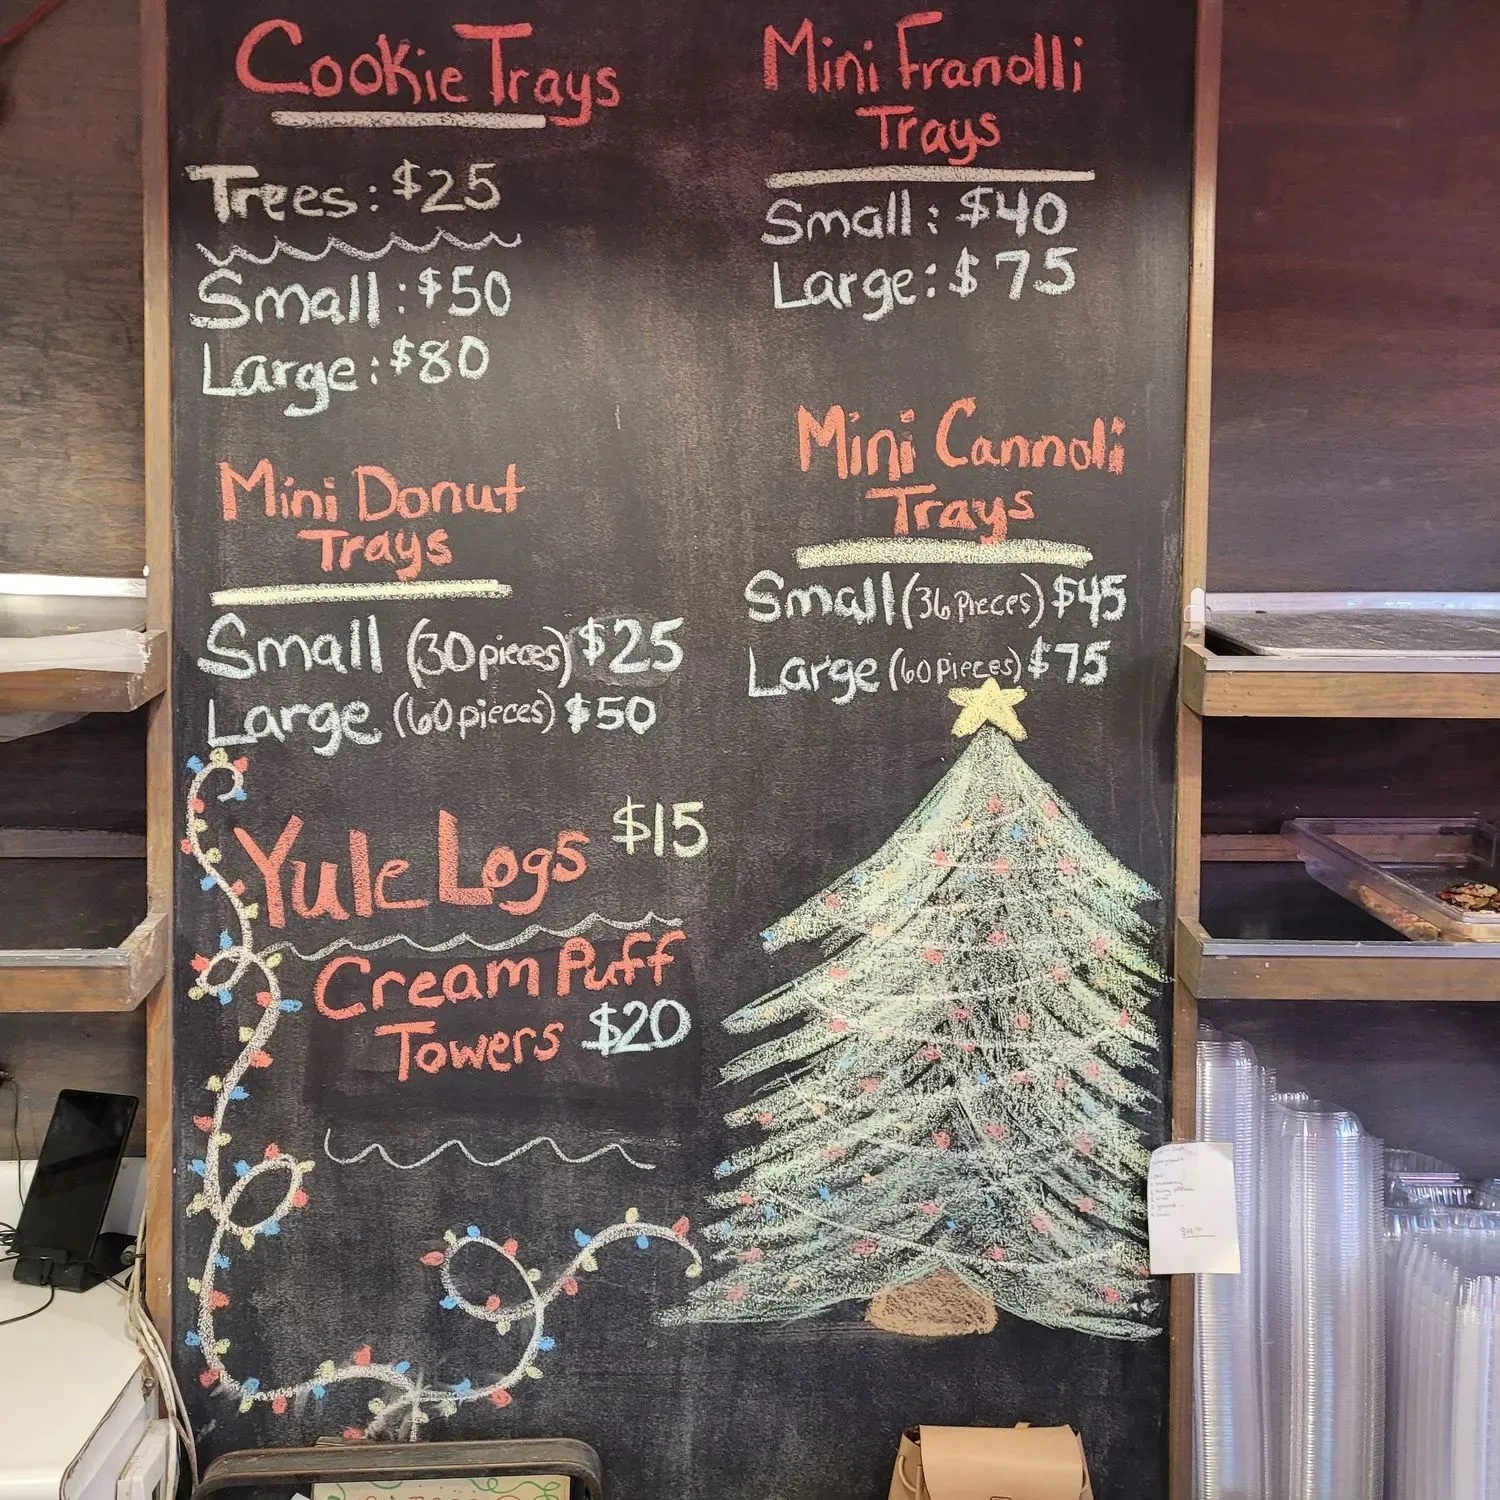 Cookie Trays
Trees: $25
Small: $50
Large: $80
Mini Franolli
Trays
Small: $40
Large: $75
Mini Donut
Trays
Small (30 pieces) $25
Large (60 pieces) $50
Mini Cannoli
Trays
Small (36 Pieces) $45
Large (60 Pieces) $75
Yule Logs $15
Cream Puff
Towers $20